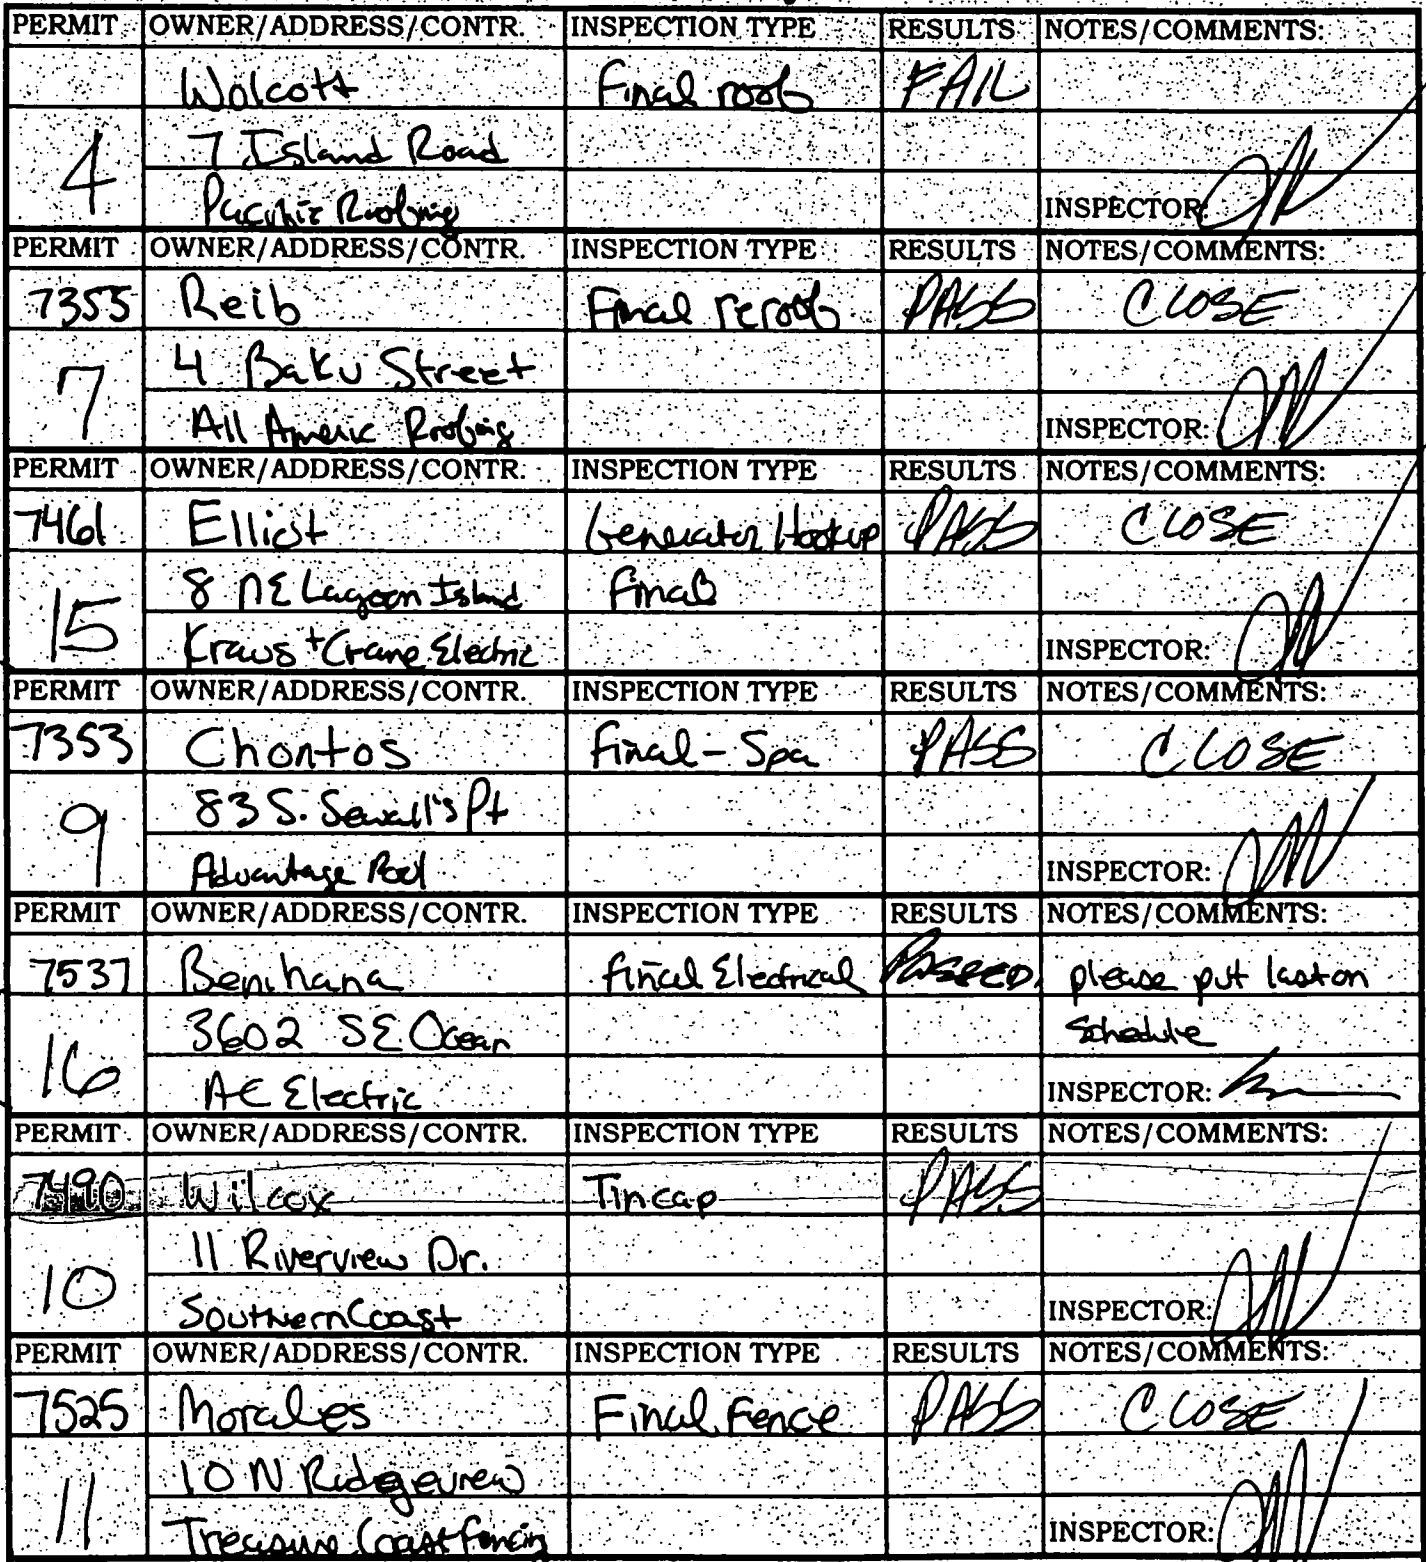 PERMIT OWNER/ADDRESS/CONTR. INSPECTION TYPE RESULTS NOTES/COMMENTS:
Wolcott Final roof FAIL
4 7 Island Road
Pacific Roofing INSPECTOR:
PERMIT OWNER/ADDRESS/CONTR. INSPECTION TYPE RESULTS NOTES/COMMENTS:
7355 Reib Final reroof PASS CLOSE
7 4 Baku Street
All Americ Roofing INSPECTOR:
PERMIT OWNER/ADDRESS/CONTR. INSPECTION TYPE RESULTS NOTES/COMMENTS:
7461 Elliot Generator Hookup PASS CLOSE
15 8 NE Lagoon Island Final
Kraus + Crane Electric INSPECTOR:
PERMIT OWNER/ADDRESS/CONTR. INSPECTION TYPE RESULTS NOTES/COMMENTS:
7353 Chontos Final - Spa PASS CLOSE
9 83 S. Sewall's Pt
Advantage Pool INSPECTOR:
PERMIT OWNER/ADDRESS/CONTR. INSPECTION TYPE RESULTS NOTES/COMMENTS:
7537 Benihana Final Electrical PASSED please put last on
16 3602 SE Ocean schedule
AC Electric INSPECTOR:
PERMIT OWNER/ADDRESS/CONTR. INSPECTION TYPE RESULTS NOTES/COMMENTS:
7490 Wilcox Tincap PASS
10 11 Riverview Dr.
Southern Coast INSPECTOR:
PERMIT OWNER/ADDRESS/CONTR. INSPECTION TYPE RESULTS NOTES/COMMENTS:
7525 Morales Final Fence PASS CLOSE
11 10 N Ridgeview
Treasure Coast Fencing INSPECTOR: